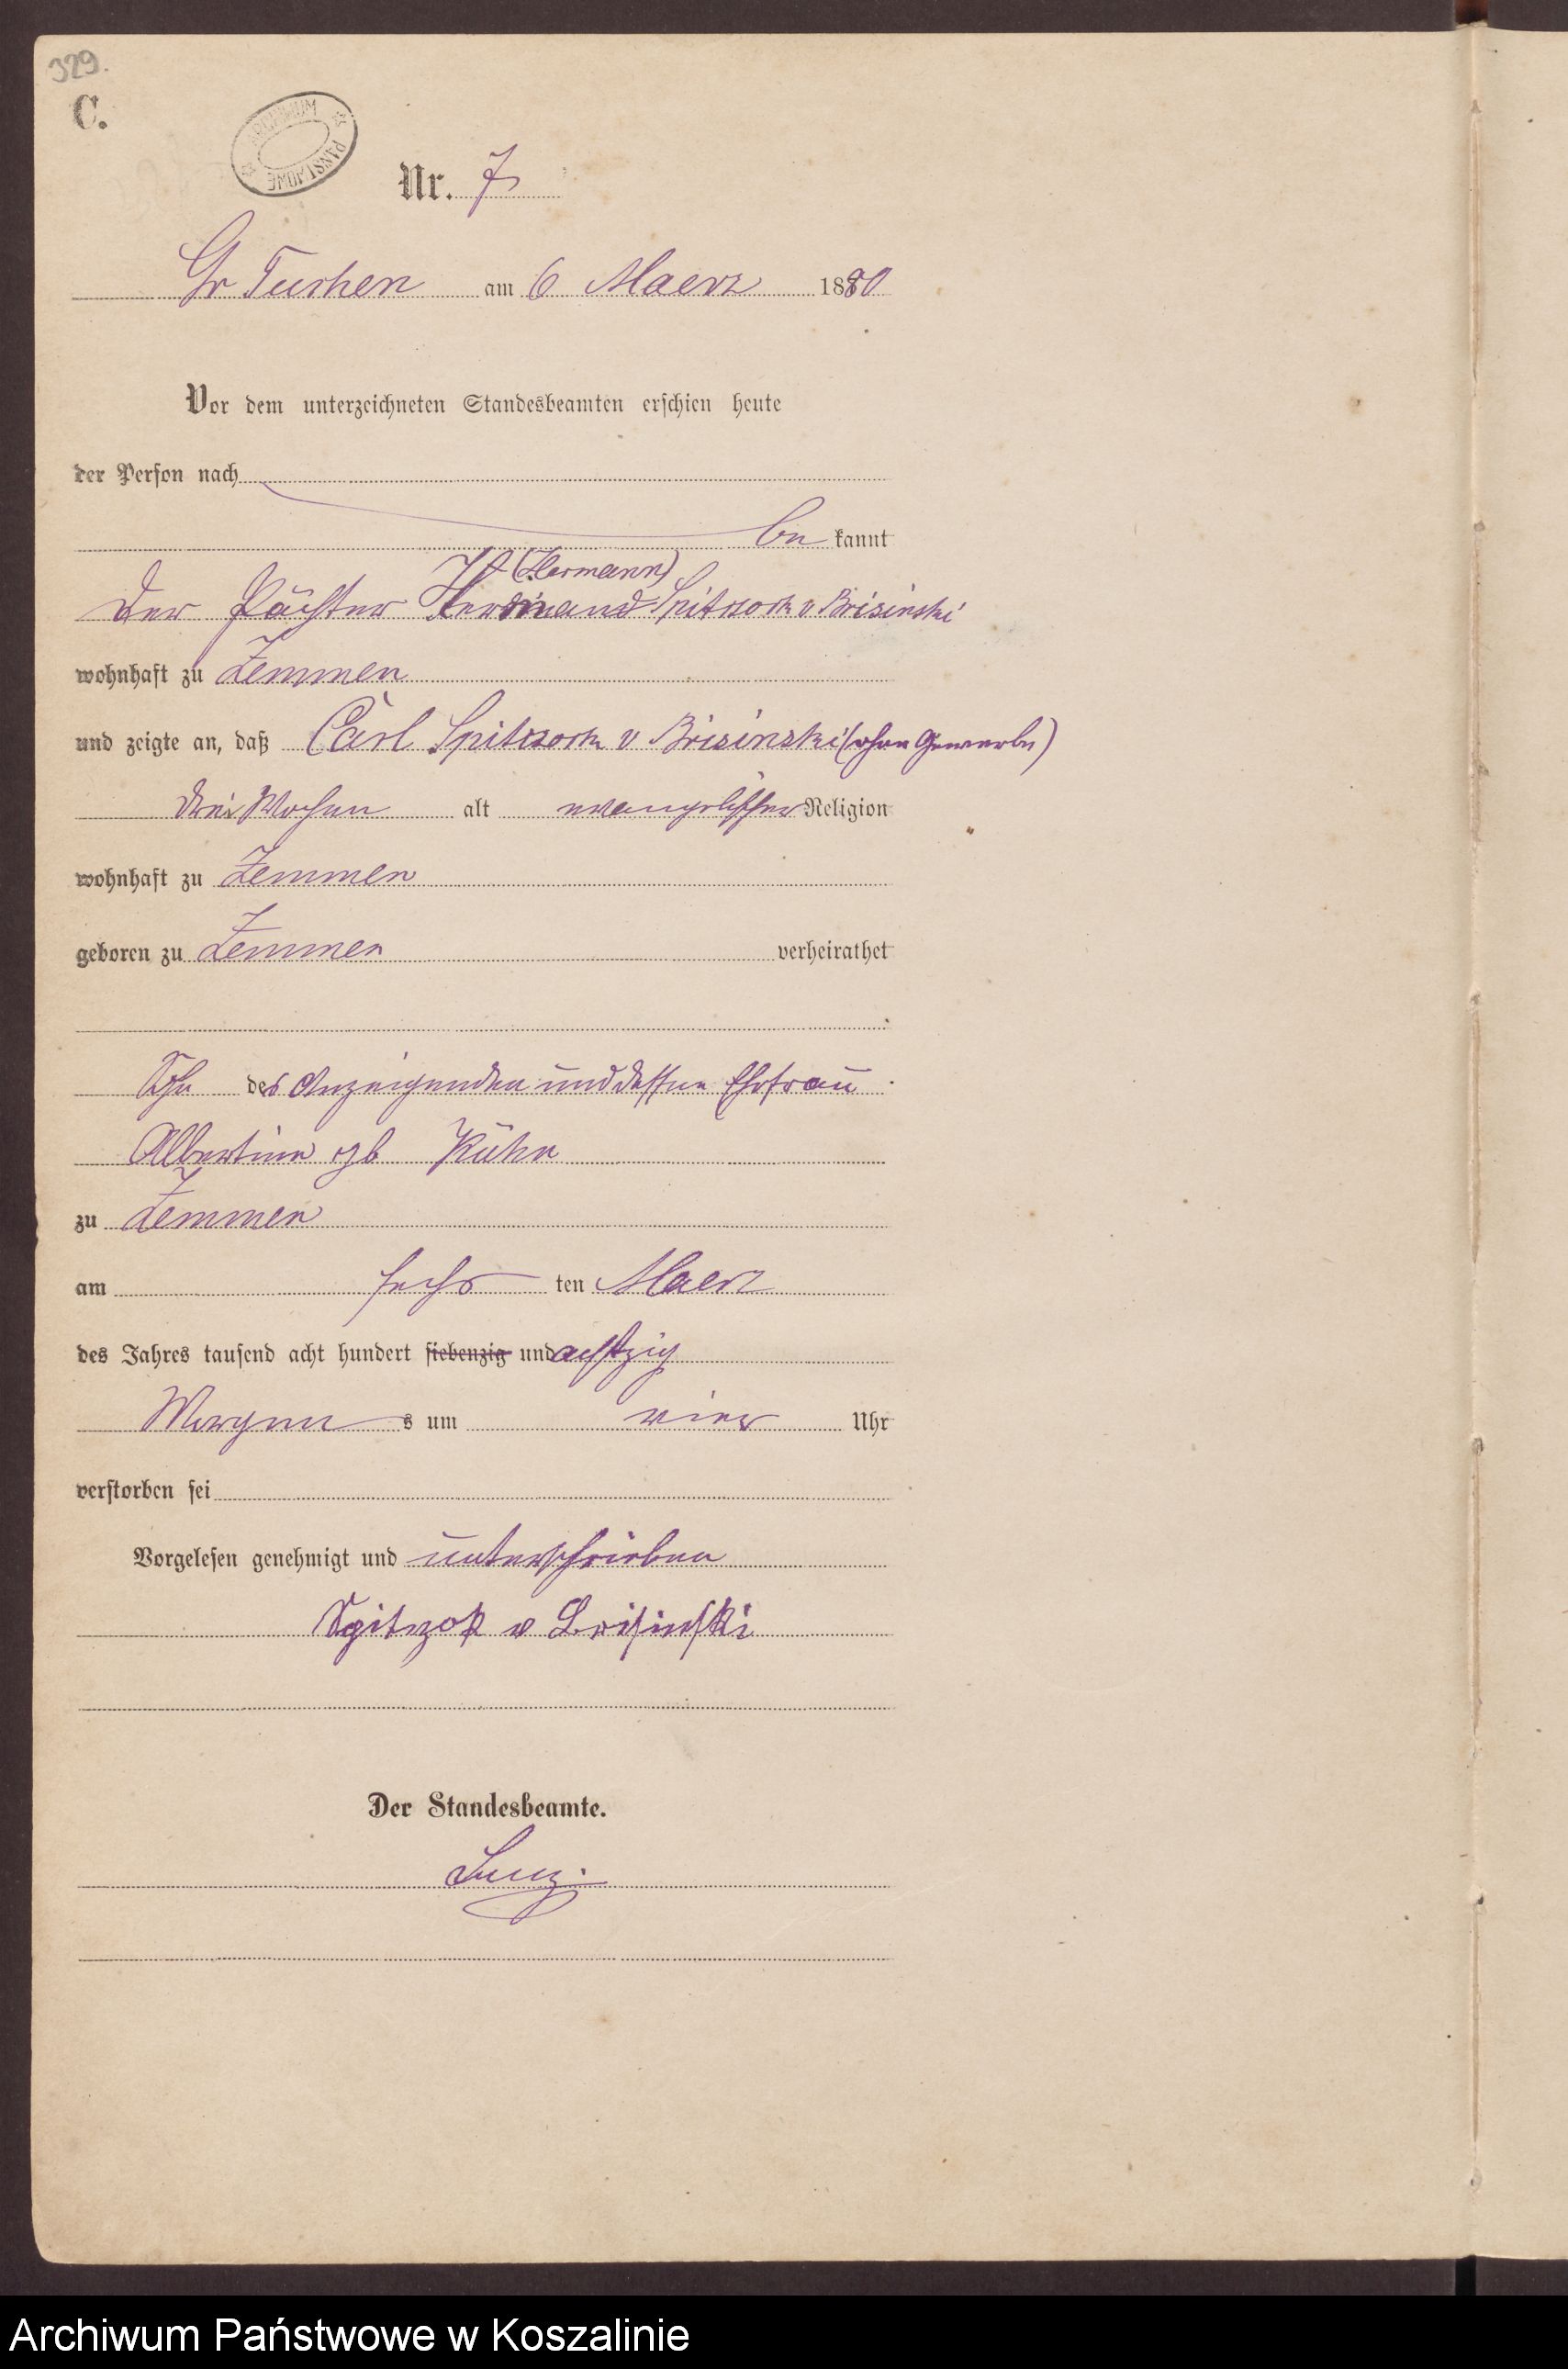 329.
C.
ARCHIWUM PAŃSTWOWE
Nr. 7
Gr Tuchen am 6 Maerz 1880
Vor dem unterzeichneten Standesbeamten erschien heute
der Person nach
be kannt
(Hermann)
Der Pächter Spitzsock v Brisinski
wohnhaft zu Zemmen
und zeigte an, daß Carl Spitzsock v Brisinski (ohne Gewerbe)
drei Wochen alt evangelischer Religion
wohnhaft zu Zemmen
geboren zu Zemmen verheirathet
Sohn des Anzeigenden und dessen Ehefrau
Albertine geb Kühn
zu Zemmen
am sechs ten Maerz
des Jahres tausend acht hundert siebenzig und achtzig
Morgen s um vier Uhr
verstorben sei
Vorgelesen genehmigt und unterschrieben
Spitzok v Brisinski
Der Standesbeamte.
Archiwum Państwowe w Koszalinie